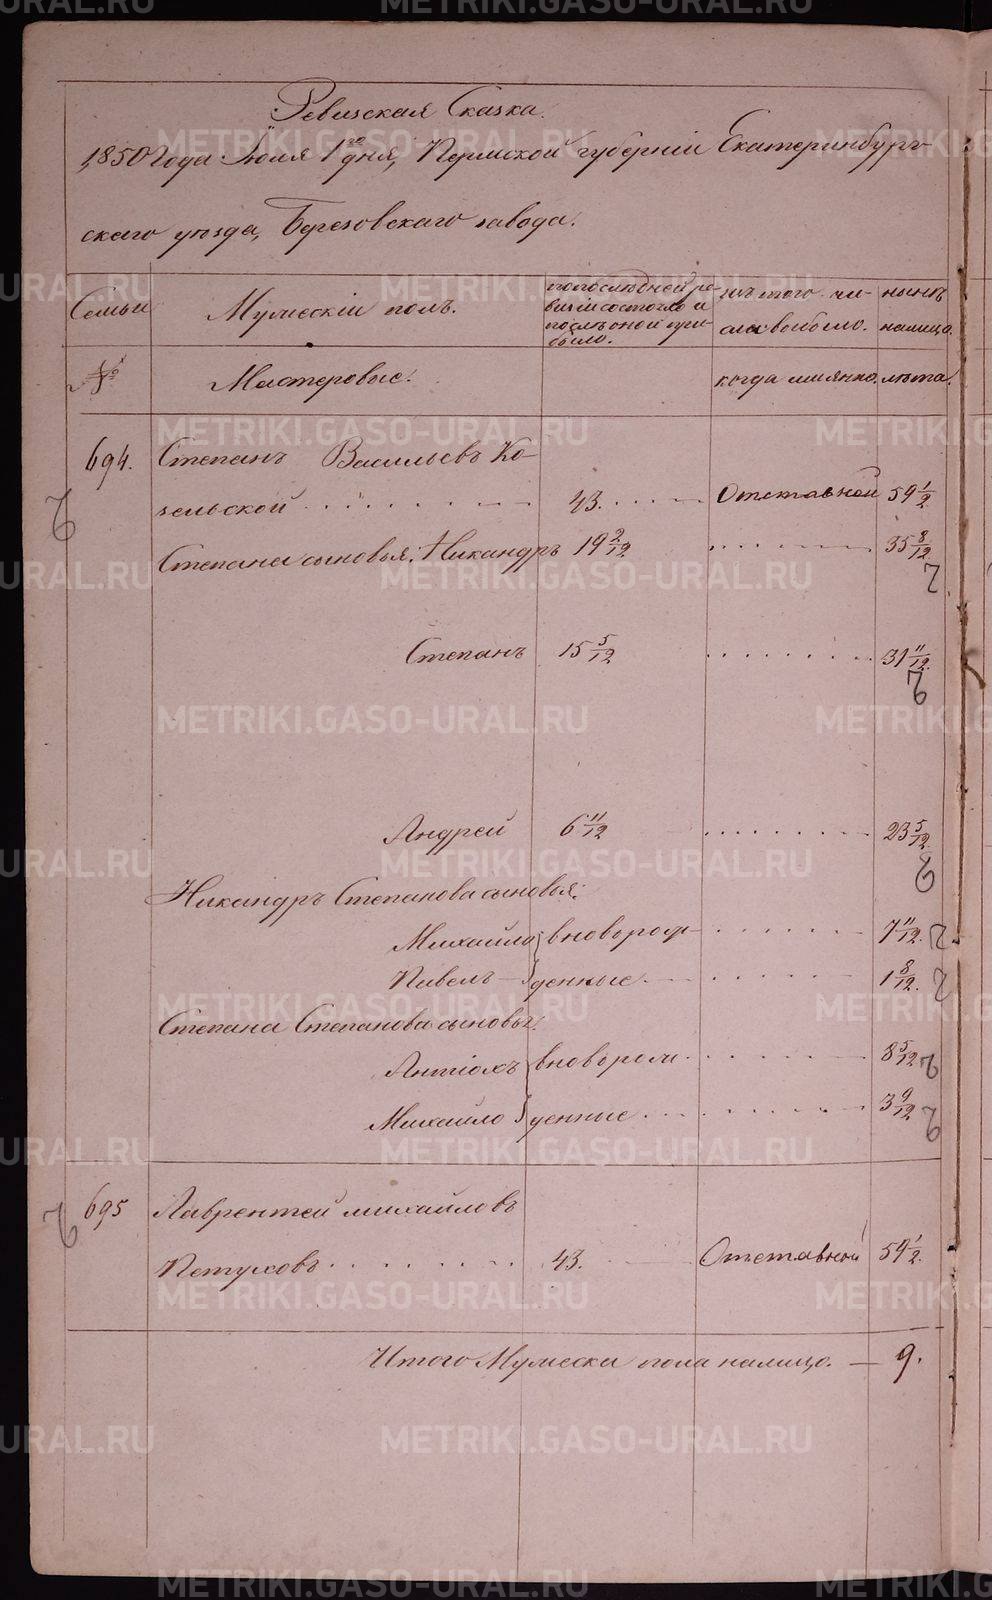 Ревизская Сказка.
1850 Года Июля 1го дня, Пермской губернiи Екатеринбург-
скаго уезда, Березовскаго завода.
Семьи
Мужескiй полъ.
по последней ре-
визiи состояло и
после оной при-
было.
изъ того чи-
сла выбыло.
ныне
налицо.
№
Мастеровые.
когда имянно.
лета.
694.
Степанъ Васильевъ Ко-
зельской
43.
Отставной
59 1/2
Степана сыновья: Никандръ
19 2/12
35 8/12
Степанъ
15 5/12
31 11/12
Андрей
6 11/12
23 5/12
Никандръ Степанова сыновья:
Михайло
вноворож-
7 11/12
Павелъ
денные
1 8/12
Степана Степанова сыновья:
Антiохъ
вноворож
8 5/12
Михайло
денные
3 9/12
695
Лаврентей Михайловъ
Петуховъ
43.
Отставной
59 1/2
Итого Мужеска пола налицо. — 9.
METRIKI.GASO-URAL.RU